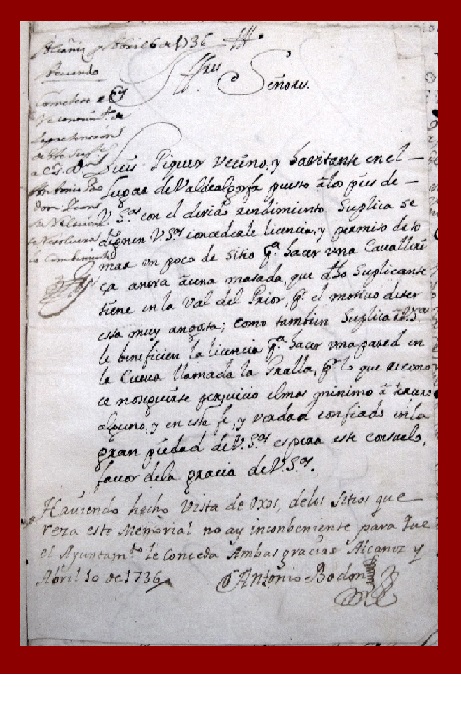 Alcañiz y Abril 6 de 1736
Acuerdo
Cometese a
Illres
Señores.
Luis Piquer Vecino, y havitante en el
Lugar de Valdealgorfa puesto a los pies de
V. Sres. con el devido rendimiento Suplica se
dignen V. Sres. concederle licencia, y permiso de to
mar un poco de sitio pa. hacer una Cavalleri
ça ahora a una matada, que dho Suplicante
tiene en la Val del Prior, pr. el motivo de ser
esta muy angosta; como tambien Suplica
le beneficien la licencia pa. hacer una pared en
la Cueva llamada la Tralla, pr. lo que recono
ce no seguirse perjuicio el mas minimo a
alguno, y en esta fe, y verdad confiado en la
gran piedad de V. Sres. espera este consuelo,
favor de la gracia de V. Sres.
Haviendo hecho Vista de Oxos, de los Sitios que
reza este Memorial no ay inconbeniente para que
el Ayuntamto. le conceda Ambas gracias Alcañiz y
Abril 10 de 1736
Antonio Bodon